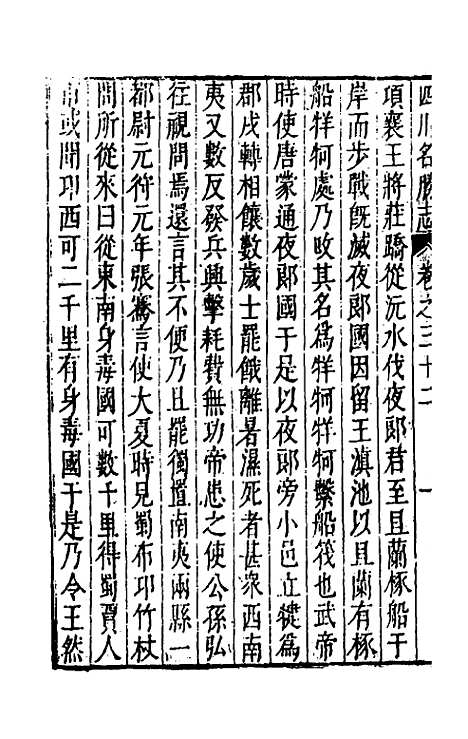 四川名勝志 卷之三十二 一
項襄王將莊蹻從沅水伐夜郎君至且蘭椓船于
岸而步戰旣滅夜郎國因留王滇池以且蘭有椓
船牂牁處乃改其名爲牂牁牂牁繫船筏也武帝
時使唐蒙通夜郎國于是以夜郎旁小邑立犍爲
郡戍轉相饟數歲士罷餓離暑濕死者甚衆西南
夷又數反發兵興擊耗費無功帝患之使公孫弘
往視問焉還言其不便乃且罷獨置南夷兩縣一
都尉元狩元年張騫言使大夏時見蜀布邛竹杖
問所從來曰從東南身毒國可數千里得蜀賈人
市或聞邛西可二千里有身毒國于是乃令王然